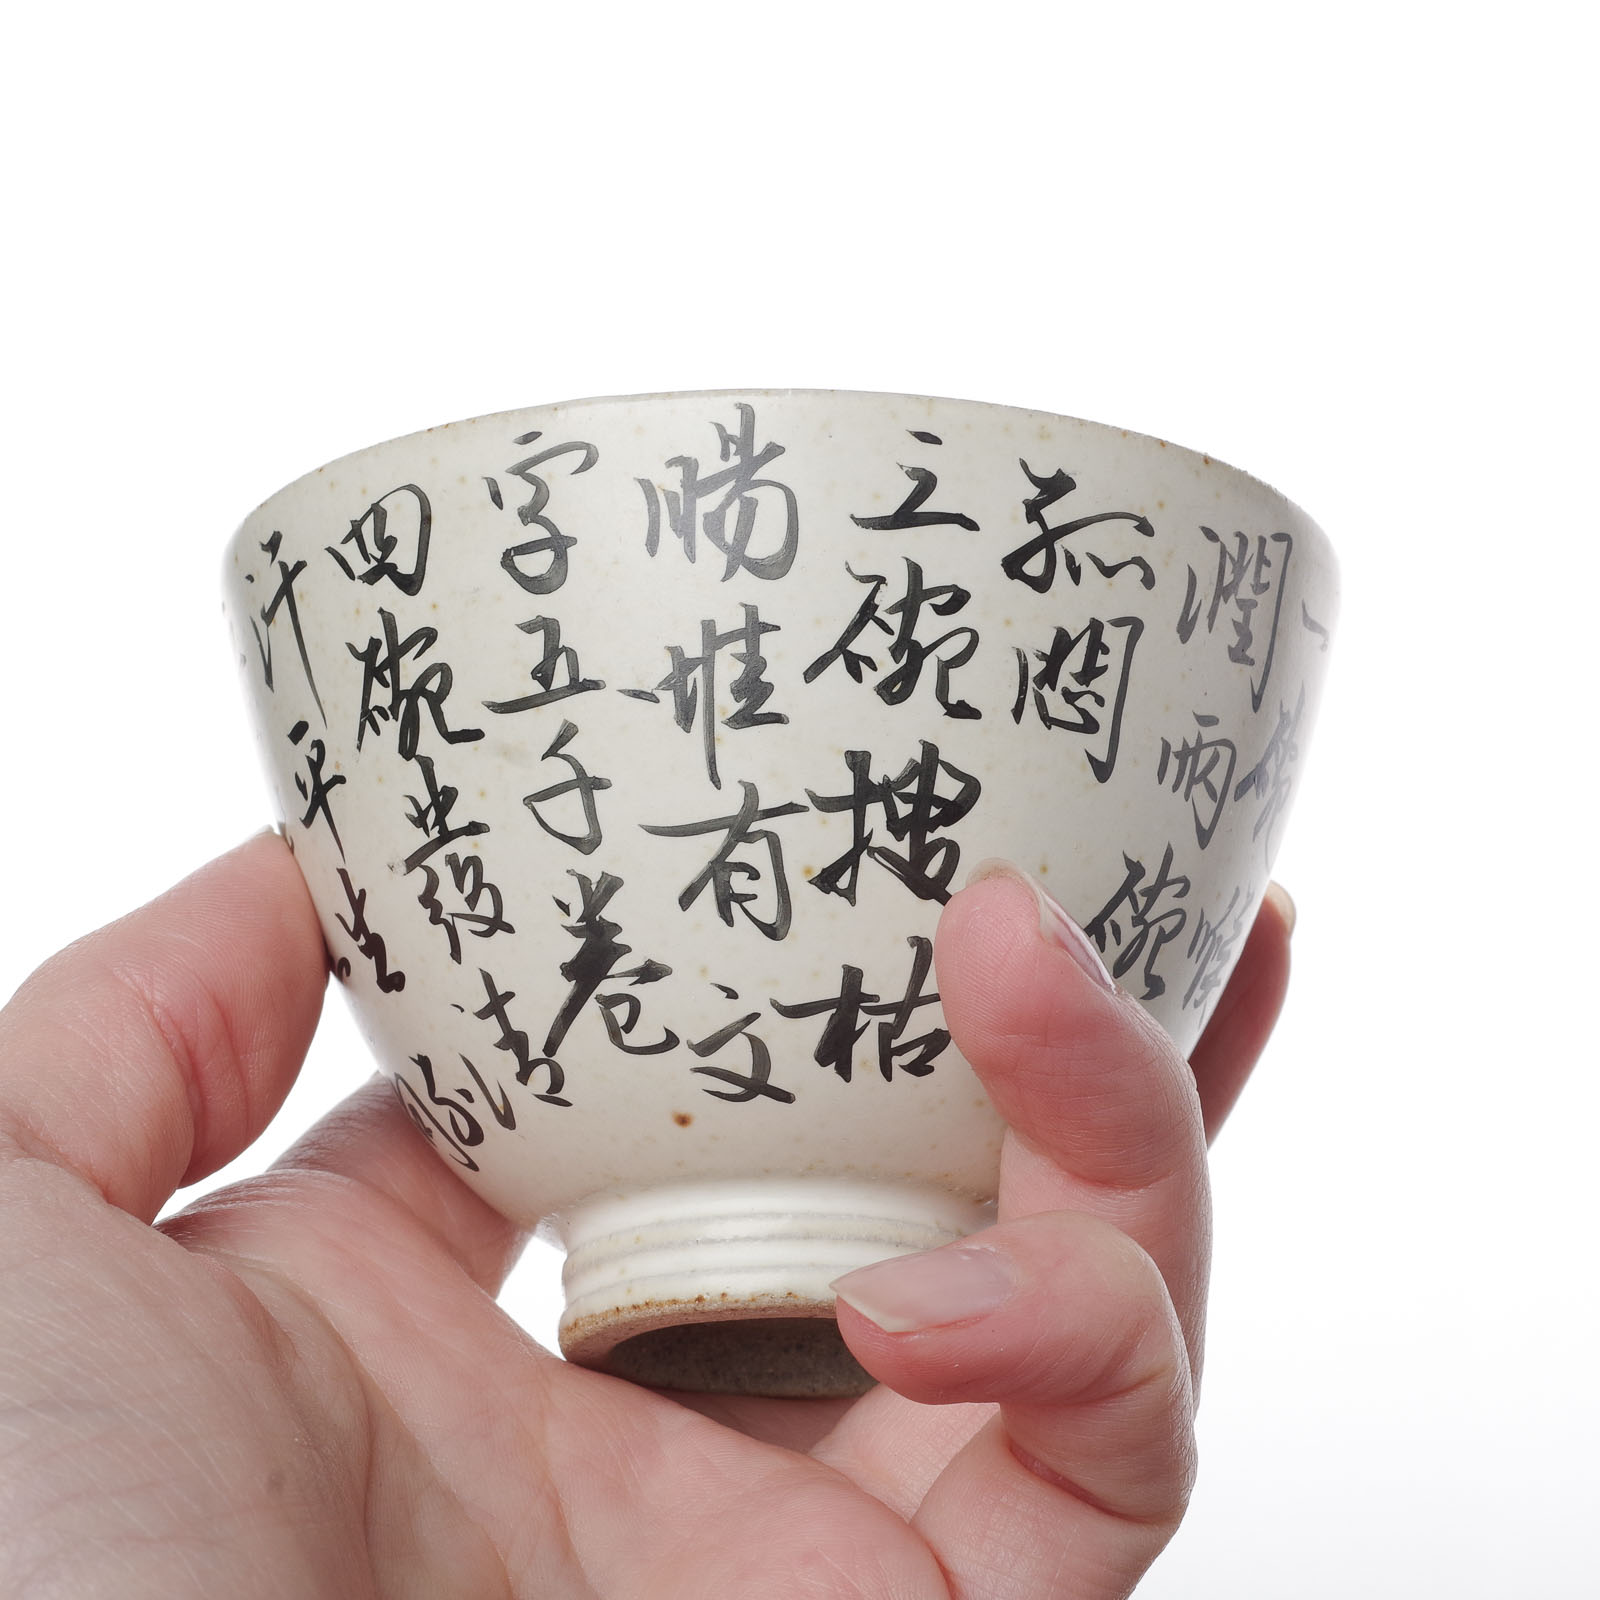 一碗喉
潤兩碗
孤悶
三碗搜枯
腸惟有文
字五千卷
四碗發清
汗平生